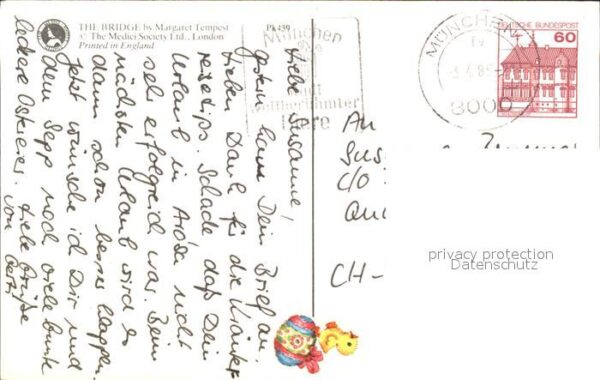 THE BRIDGE by Margaret Tempest
© The Medici Society Ltd., London
Printed in England
Pk 439
München
die
Stadt
weltberühmter
Biere
MÜNCHEN
8000
DEUTSCHE BUNDESPOST
60
Liebe Susanne,
gestern kam Dein Brief an.
Lieben Dank für die
reisetips. Schade daß Dein
Urlaub in Arosa nicht
sehr erfolgreich war. Beim
nächsten Urlaub wird es
dann schon besser klappen.
Jetzt wünsche ich Dir und
dem Sepp noch viele bunte
leckere Ostereier. Liebe Grüße
von
An
Sus
C/O
CH-
privacy protection
Datenschutz